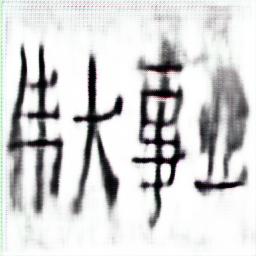 伟大事业